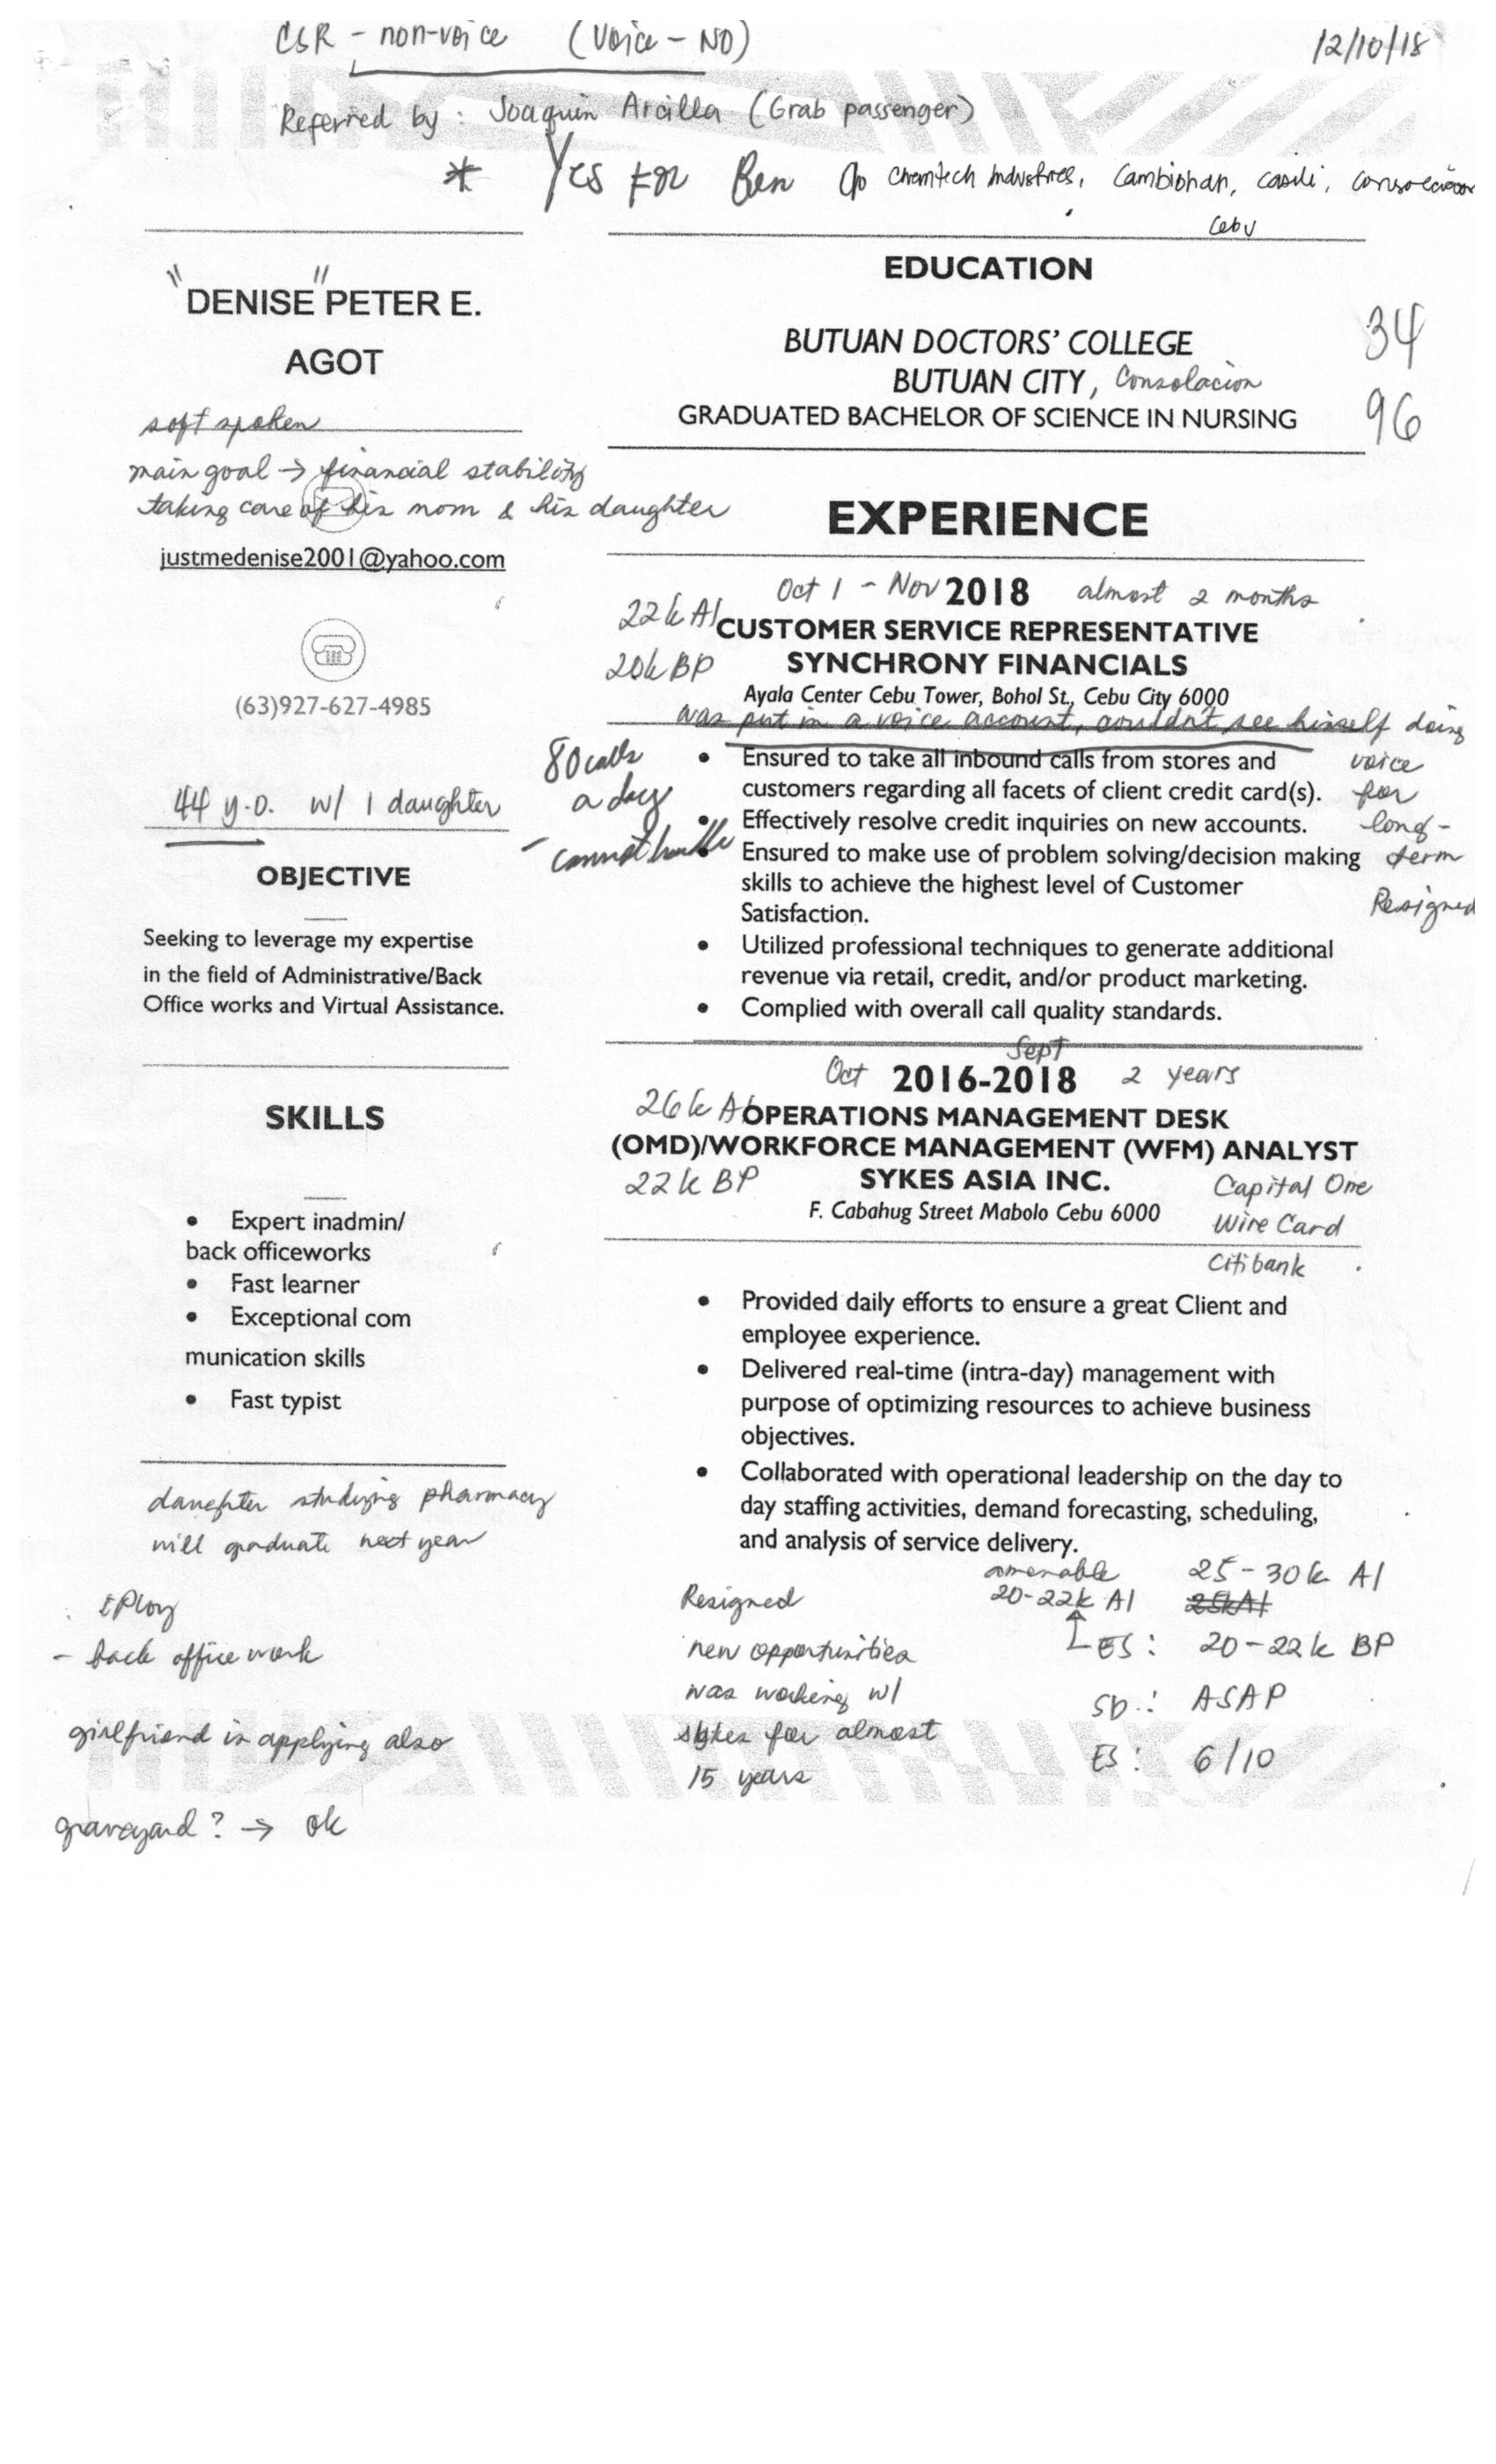 CSR - non-voice (Voice - NO)
12/10/18
Referred by : Joaquin Arcilla (Grab passenger)
* Yes for Ben c/o Chemtech Industries, Cambiohan, Casili, Consolacion
Cebu
"DENISE" PETER E.
AGOT
soft spoken
main goal → financial stability
taking care of his mom & his daughter
justmedenise2001@yahoo.com
(63)927-627-4985
44 y.o. w/ 1 daughter
OBJECTIVE
Seeking to leverage my expertise
in the field of Administrative/Back
Office works and Virtual Assistance.
SKILLS
• Expert inadmin/
back officeworks
• Fast learner
• Exceptional com
munication skills
• Fast typist
daughter studying pharmacy
will graduate next year
- back office work
girlfriend is applying also
graveyard? → ok
EDUCATION
BUTUAN DOCTORS' COLLEGE
BUTUAN CITY, Consolacion
GRADUATED BACHELOR OF SCIENCE IN NURSING
34
96
EXPERIENCE
Oct 1 - Nov 2018 almost 2 months
22k AI CUSTOMER SERVICE REPRESENTATIVE
20k BP SYNCHRONY FINANCIALS
Ayala Center Cebu Tower, Bohol St., Cebu City 6000
was put in a voice account, couldn't see himself doing
voice
for
long-
term
Resigned
80 calls
a day
- cannot handle
• Ensured to take all inbound calls from stores and
customers regarding all facets of client credit card(s).
• Effectively resolve credit inquiries on new accounts.
• Ensured to make use of problem solving/decision making
skills to achieve the highest level of Customer
Satisfaction.
• Utilized professional techniques to generate additional
revenue via retail, credit, and/or product marketing.
• Complied with overall call quality standards.
Sept
Oct 2016-2018 2 years
26k AI OPERATIONS MANAGEMENT DESK
(OMD)/WORKFORCE MANAGEMENT (WFM) ANALYST
22k BP SYKES ASIA INC.
F. Cabahug Street Mabolo Cebu 6000
Capital One
Wire Card
Citibank
• Provided daily efforts to ensure a great Client and
employee experience.
• Delivered real-time (intra-day) management with
purpose of optimizing resources to achieve business
objectives.
• Collaborated with operational leadership on the day to
day staffing activities, demand forecasting, scheduling,
and analysis of service delivery.
Resigned
new opportunities
was working w/
sykes for almost
15 years
amenable
20-22k AI
25-30k AI
25k AI
ES: 20-22k BP
SD: ASAP
ES: 6/10